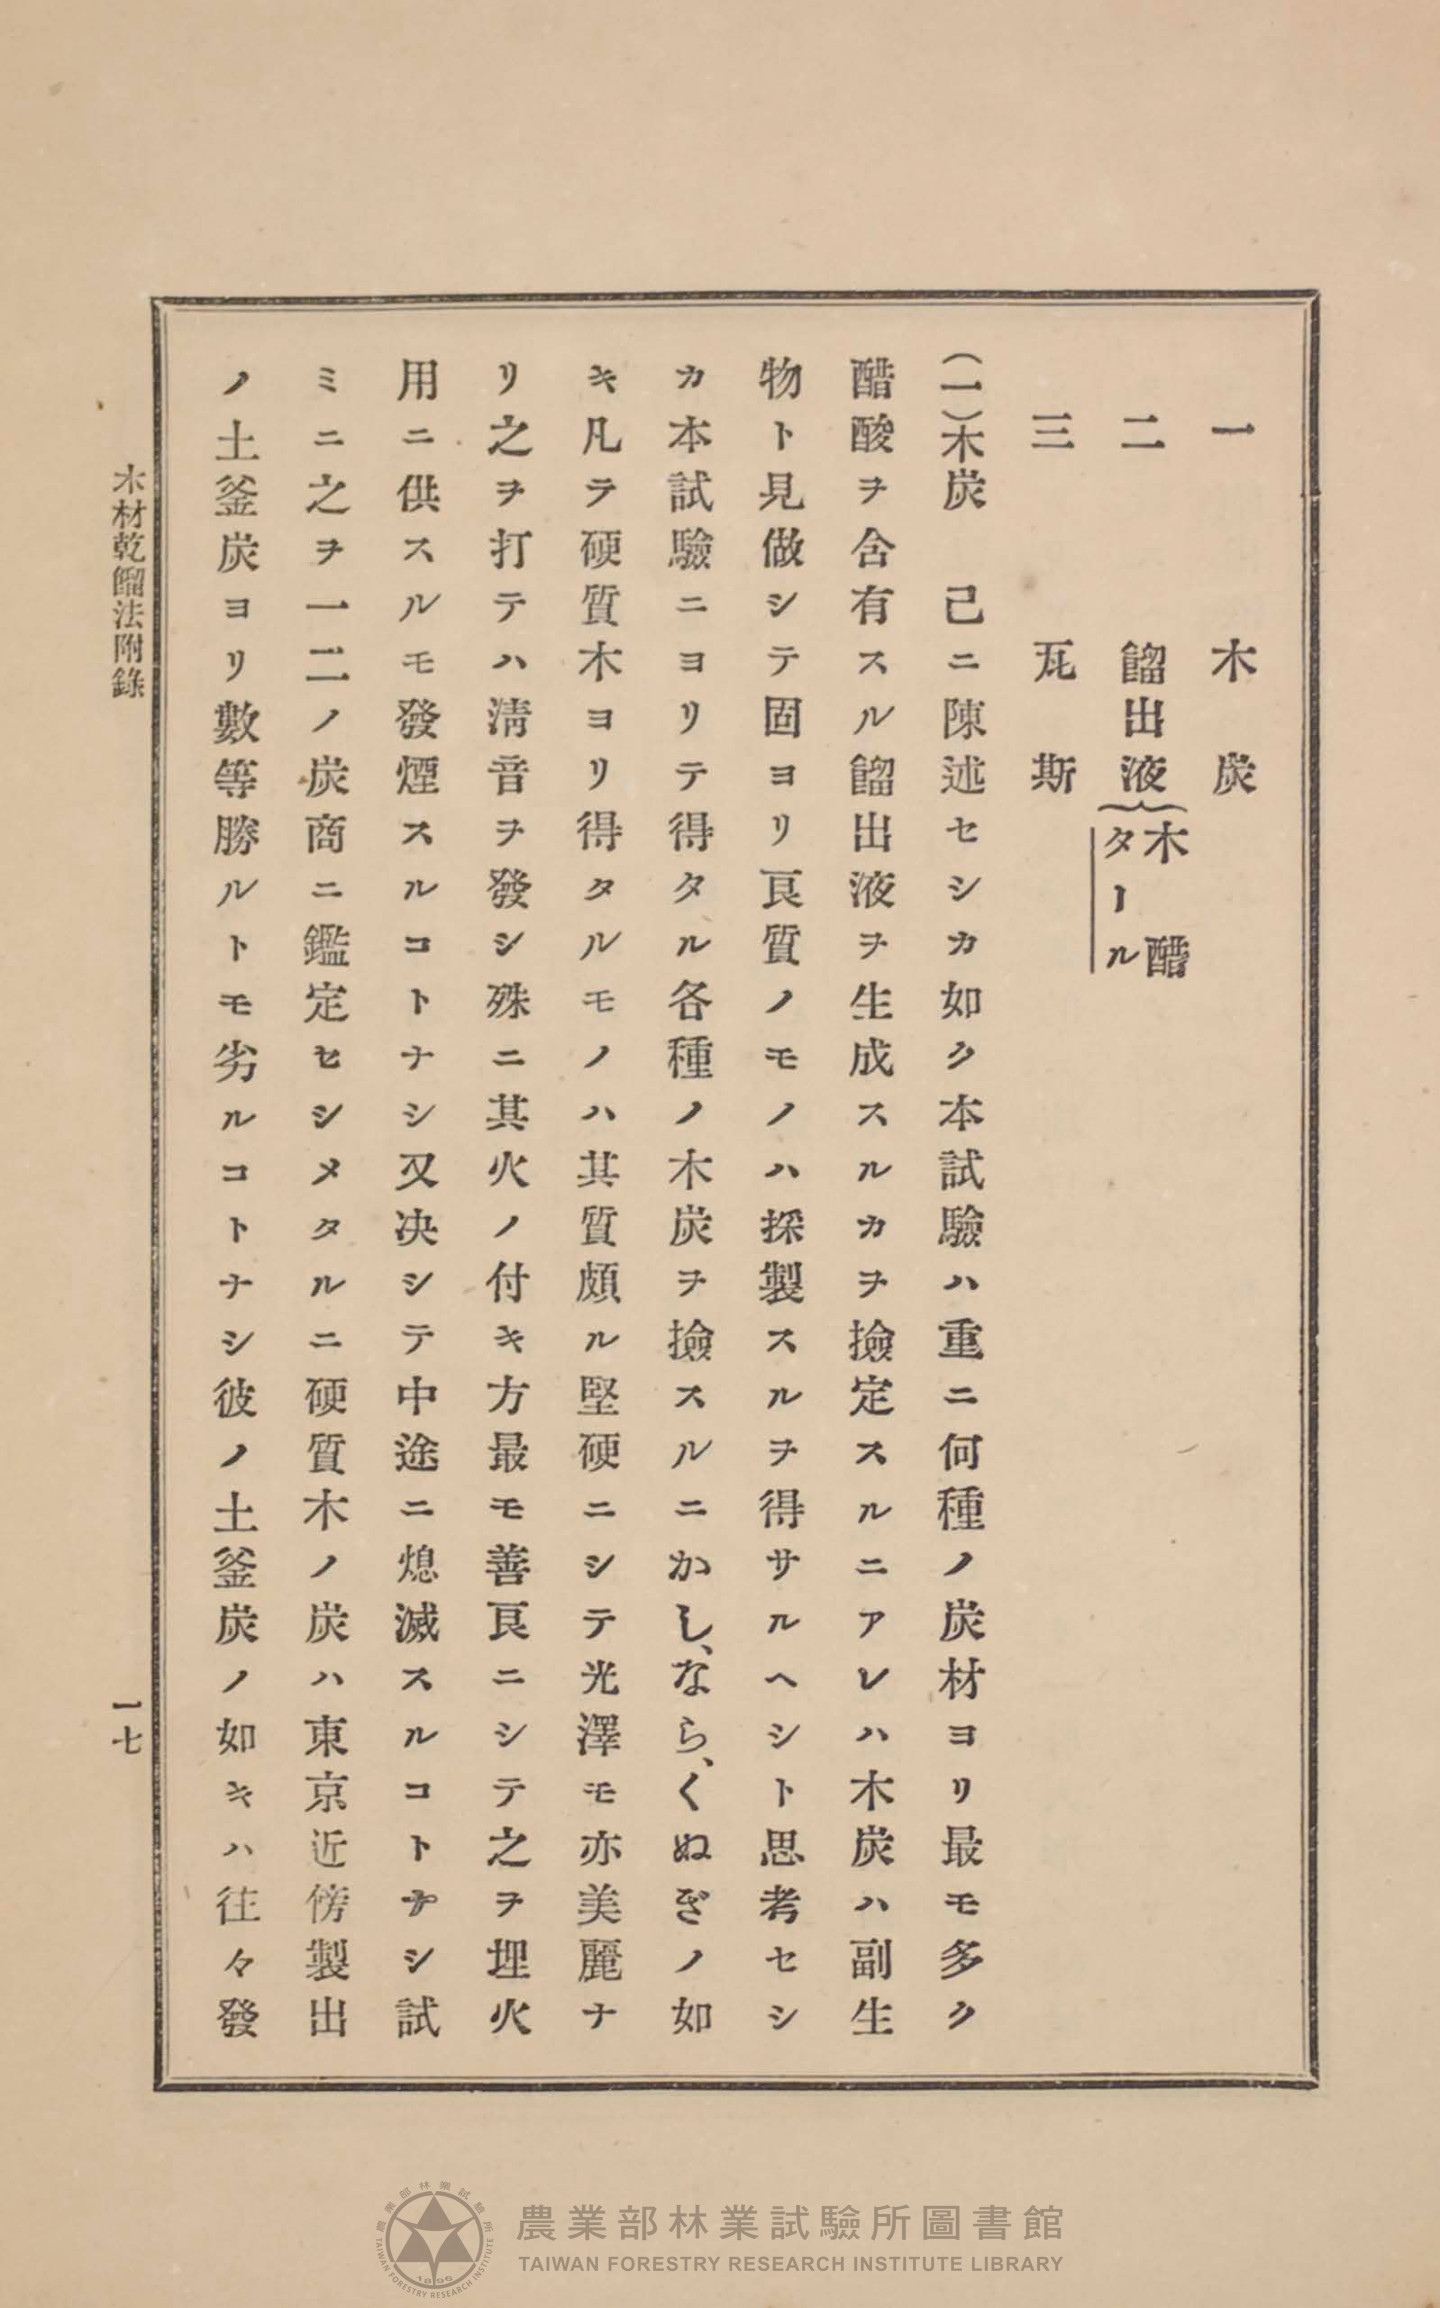 一　木炭
二　餾出液{木醋
タール
三　瓦斯
(一)木炭　已ニ陳述セシカ如ク本試驗ハ重ニ何種ノ炭材ヨリ最モ多ク
醋酸ヲ含有スル餾出液ヲ生成スルカヲ撿定スルニアレハ木炭ハ副生
物ト見做シテ固ヨリ良質ノモノハ採製スルヲ得サルヘシト思考セシ
カ本試驗ニヨリテ得タル各種ノ木炭ヲ撿スルニかし、なら、くぬぎノ如
キ凡テ硬質木ヨリ得タルモノハ其質頗ル堅硬ニシテ光澤モ亦美麗ナ
リ之ヲ打テハ淸音ヲ發シ殊ニ其火ノ付キ方最モ善良ニシテ之ヲ埋火
用ニ供スルモ發煙スルコトナシ又决シテ中途ニ熄滅スルコトナシ試
ミニ之ヲ一二ノ炭商ニ鑑定セシメタルニ硬質木ノ炭ハ東京近傍製出
ノ土釜炭ヨリ數等勝ルトモ劣ルコトナシ彼ノ土釜炭ノ如キハ往々發
木材乾餾法附錄
一七
農業部林業試驗所圖書館
TAIWAN FORESTRY RESEARCH INSTITUTE LIBRARY
農業部林業試驗所
TAIWAN FORESTRY RESEARCH INSTITUTE
1896